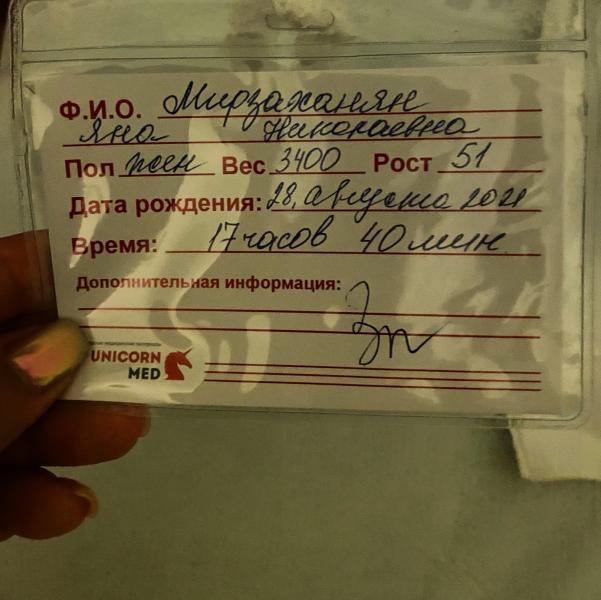 Ф.И.О. Мирзаханян
Яна Николаевна
Пол жен Вес 3400 Рост 51
Дата рождения: 28 августа 2021
Время: 17 часов 40 мин
Дополнительная информация:
UNICORN
MED